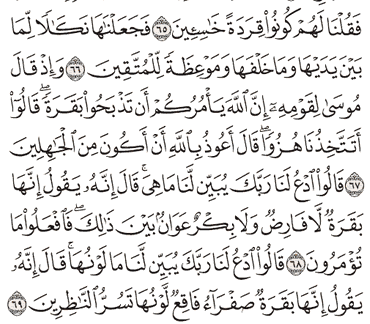 فَقُلْنَا لَهُمْ كُونُوا۟ قِرَدَةً خَٰسِـِٔينَ ٦٥ فَجَعَلْنَٰهَا نَكَٰلًا لِّمَا
بَيْنَ يَدَيْهَا وَمَا خَلْفَهَا وَمَوْعِظَةً لِّلْمُتَّقِينَ ٦٦ وَإِذْ قَالَ
مُوسَىٰ لِقَوْمِهِۦٓ إِنَّ ٱللَّهَ يَأْمُرُكُمْ أَن تَذْبَحُوا۟ بَقَرَةً ۖ قَالُوٓا۟
أَتَتَّخِذُنَا هُزُوًا ۖ قَالَ أَعُوذُ بِٱللَّهِ أَنْ أَكُونَ مِنَ ٱلْجَٰهِلِينَ
٦٧ قَالُوا۟ ٱدْعُ لَنَا رَبَّكَ يُبَيِّن لَّنَا مَا هِىَ ۚ قَالَ إِنَّهُۥ يَقُولُ إِنَّهَا
بَقَرَةٌ لَّا فَارِضٌ وَلَا بِكْرٌ عَوَانٌۢ بَيْنَ ذَٰلِكَ ۖ فَٱفْعَلُوا۟ مَا
تُؤْمَرُونَ ٦٨ قَالُوا۟ ٱدْعُ لَنَا رَبَّكَ يُبَيِّن لَّنَا مَا لَوْنُهَا ۚ قَالَ إِنَّهُۥ
يَقُولُ إِنَّهَا بَقَرَةٌ صَفْرَآءُ فَاقِعٌ لَّوْنُهَا تَسُرُّ ٱلنَّٰظِرِينَ ٦٩